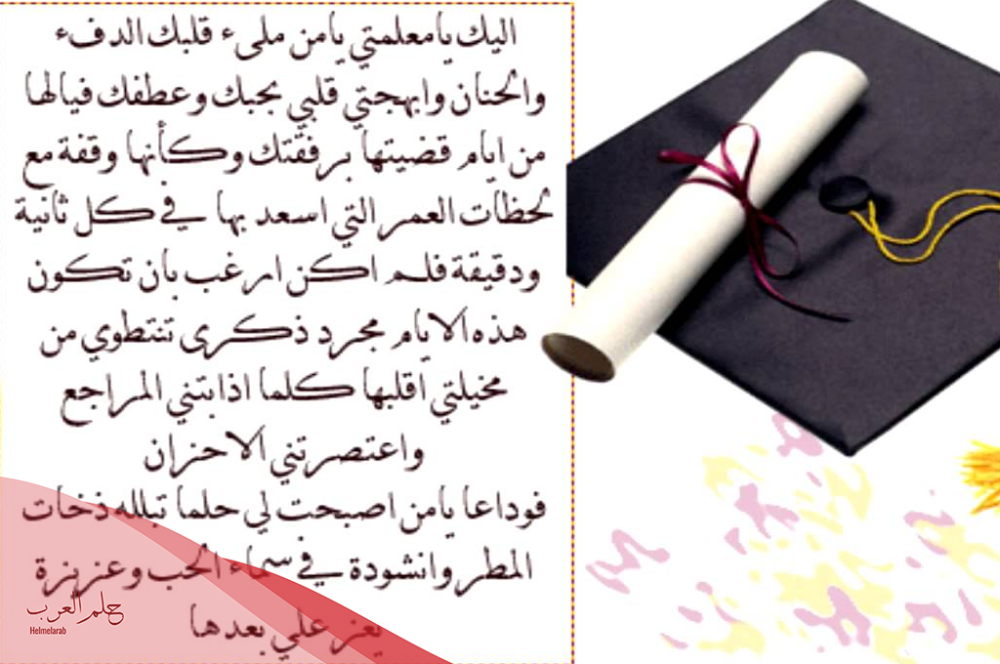 اليك يامعلمتي يامن ملىء قلبك الدفء
والحنان وابهجتي قلبي بحبك وعطفك فيالها
من ايام قضيتها برفقتك وكأنها وقفة مع
لحظات العمر التي اسعد بها في كل ثانية
ودقيقة فلم اكن ارغب بان تكون
هذه الايام مجرد ذكرى تنتطوي من
مخيلتي اقلبها كلما اذابتني المراجع
واعتصرتني الاحزان
فوداعا يامن اصبحت لي حلما تبلله ذخات
المطر وانشودة في سماء الحب وعزيزة
يعز علي بعدها
حلم العرب
Helmelarab